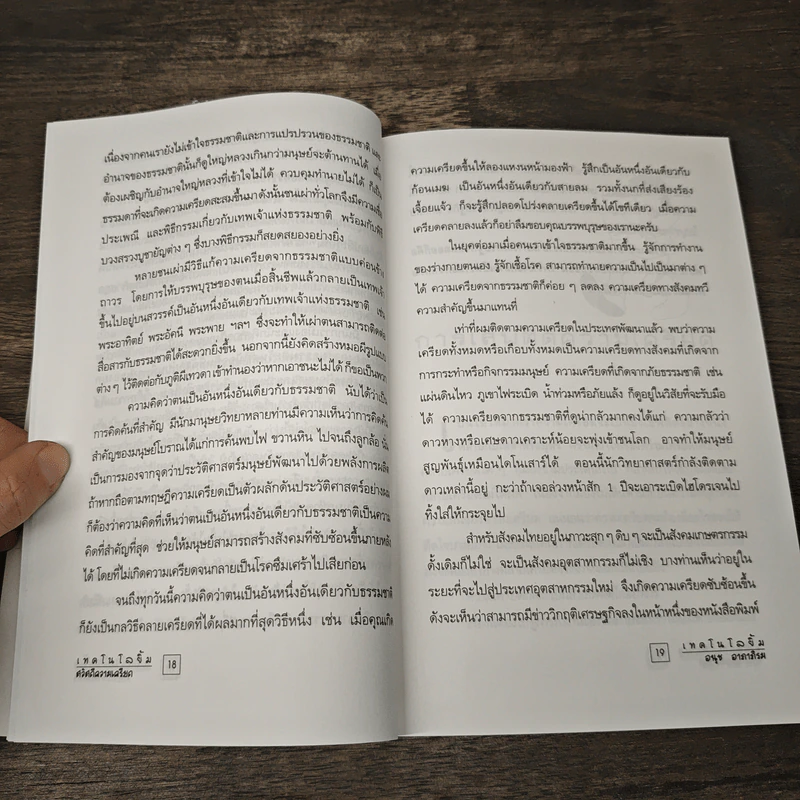 เนื่องจากคนเรายังไม่เข้าใจธรรมชาติและการแปรปรวนของธรรมชาติ และ
อำนาจของธรรมชาตินั้นก็ดูใหญ่หลวงเกินกว่ามนุษย์จะต้านทานได้ เมื่อ
ต้องเผชิญกับอำนาจใหญ่หลวงที่เข้าใจไม่ได้ ควบคุมทำนายไม่ได้ ก็เป็น
ธรรมดาที่จะเกิดความเครียดสะสมขึ้นมา ดังนั้นชนเผ่าทั่วโลกจึงมีความเชื่อ
ประเพณี และพิธีกรรมเกี่ยวกับเทพเจ้าแห่งธรรมชาติ พร้อมกับพิธี
บวงสรวงบูชายัญต่าง ๆ ซึ่งบางพิธีกรรมก็สยดสยองอย่างยิ่ง
หลายชนเผ่ามีวิธีแก้ความเครียดจากธรรมชาติแบบค่อนข้าง
ถาวร โดยการให้บรรพบุรุษของตนเมื่อสิ้นชีพแล้วกลายเป็นเทพเจ้า
ขึ้นไปอยู่บนสวรรค์เป็นอันหนึ่งอันเดียวกับเทพเจ้าแห่งธรรมชาติ เช่น
พระอาทิตย์ พระอัคนี พระพาย ฯลฯ ซึ่งจะทำให้เผ่าตนสามารถติดต่อ
สื่อสารกับธรรมชาติได้สะดวกยิ่งขึ้น นอกจากนี้ยังคิดสร้างหมอผีรูปแบบ
ต่าง ๆ ไว้ติดต่อกับภูติผีเทวดา เข้าทำนองว่าหากเอาชนะไม่ได้ ก็ขอเป็นพวก
ความคิดว่าตนเป็นอันหนึ่งอันเดียวกับธรรมชาติ นับได้ว่าเป็น
การคิดค้นที่สำคัญ มีนักมานุษยวิทยาหลายท่านมีความเห็นว่าการคิดค้น
สำคัญของมนุษย์โบราณได้แก่การค้นพบไฟ ขวานหิน ไปจนถึงลูกล้อ นั่น
เป็นการมองจากจุดว่าประวัติศาสตร์มนุษย์พัฒนาไปด้วยพลังการผลิต
ถ้าหากถือตามทฤษฎีความเครียดเป็นตัวผลักดันประวัติศาสตร์อย่างผม
ก็ต้องว่าความคิดที่เห็นว่าตนเป็นอันหนึ่งอันเดียวกับธรรมชาติเป็นความ
คิดที่สำคัญที่สุด ช่วยให้มนุษย์สามารถสร้างสังคมที่ซับซ้อนขึ้นภายหลัง
ได้ โดยที่ไม่เกิดความเครียดจนกลายเป็นโรคซึมเศร้าไปเสียก่อน
จนถึงทุกวันนี้ความคิดว่าตนเป็นอันหนึ่งอันเดียวกับธรรมชาติ
ก็ยังเป็นกลวิธีคลายเครียดที่ได้ผลมากที่สุดวิธีหนึ่ง เช่น เมื่อคุณเกิด
เทคโนโลจิ๋ม
ทวิตถีความเครียด
18
ความเครียดขึ้นให้ลองแหงนหน้ามองฟ้า รู้สึกเป็นอันหนึ่งอันเดียวกับ
ก้อนเมฆ เป็นอันหนึ่งอันเดียวกับสายลม รวมทั้งนกที่ส่งเสียงร้อง
เจื้อยแจ้ว ก็จะรู้สึกปลอดโปร่งคลายเครียดขึ้นได้โขทีเดียว เมื่อความ
เครียดคลายลงแล้วก็อย่าลืมขอบคุณบรรพบุรุษของเรานะครับ
ในยุคต่อมาเมื่อคนเราเข้าใจธรรมชาติมากขึ้น รู้จักการทำงาน
ของร่างกายตนเอง รู้จักเชื้อโรค สามารถทำนายความเป็นไปเป็นมาต่าง ๆ
ได้ ความเครียดจากธรรมชาติก็ค่อย ๆ ลดลง ความเครียดทางสังคมทวี
ความสำคัญขึ้นมาแทนที่
เท่าที่ผมติดตามความเครียดในประเทศพัฒนาแล้ว พบว่าความ
เครียดทั้งหมดหรือเกือบทั้งหมดเป็นความเครียดทางสังคมที่เกิดจาก
การกระทำหรือกิจกรรมมนุษย์ ความเครียดที่เกิดจากภัยธรรมชาติ เช่น
แผ่นดินไหว ภูเขาไฟระเบิด น้ำท่วมหรือภัยแล้ง ก็ดูอยู่ในวิสัยที่จะรับมือ
ได้ ความเครียดจากธรรมชาติที่ดูน่ากลัวมากคงได้แก่ ความกลัวว่า
ดาวหางหรือเศษดาวเคราะห์น้อยจะพุ่งเข้าชนโลก อาจทำให้มนุษย์
สูญพันธุ์เหมือนไดโนเสาร์ได้ ตอนนี้นักวิทยาศาสตร์กำลังติดตาม
ดาวเหล่านี้อยู่ กะว่าถ้าเจอล่วงหน้าสัก 1 ปีจะเอาระเบิดไฮโดรเจนไป
ทิ้งใส่ให้กระจุยไป
สำหรับสังคมไทยอยู่ในภาวะสุก ๆ ดิบ ๆ จะเป็นสังคมเกษตรกรรม
ดั้งเดิมก็ไม่ใช่ จะเป็นสังคมอุตสาหกรรมก็ไม่เชิง บางท่านเห็นว่าอยู่ใน
ระยะที่จะไปสู่ประเทศอุตสาหกรรมใหม่ จึงเกิดความเครียดซับซ้อนขึ้น
ดังจะเห็นว่าสามารถมีข่าววิกฤติเศรษฐกิจลงในหน้าหนึ่งของหนังสือพิมพ์
19
เทคโนโลจิ๋ม
อนุช อาภาภิรม